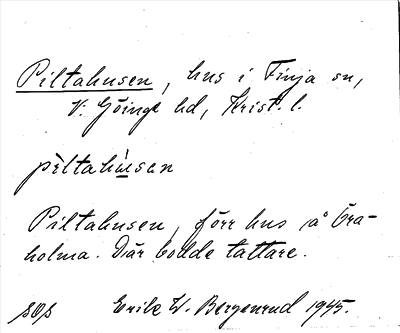 Piltahusen, hus i Finja sn,
V. Göinge hd, Krist. l.
pìltahùsan
Piltahusen, förr hus å Öra-
holma. Där bodde tattare.
Erik W. Bergenrud 1945.